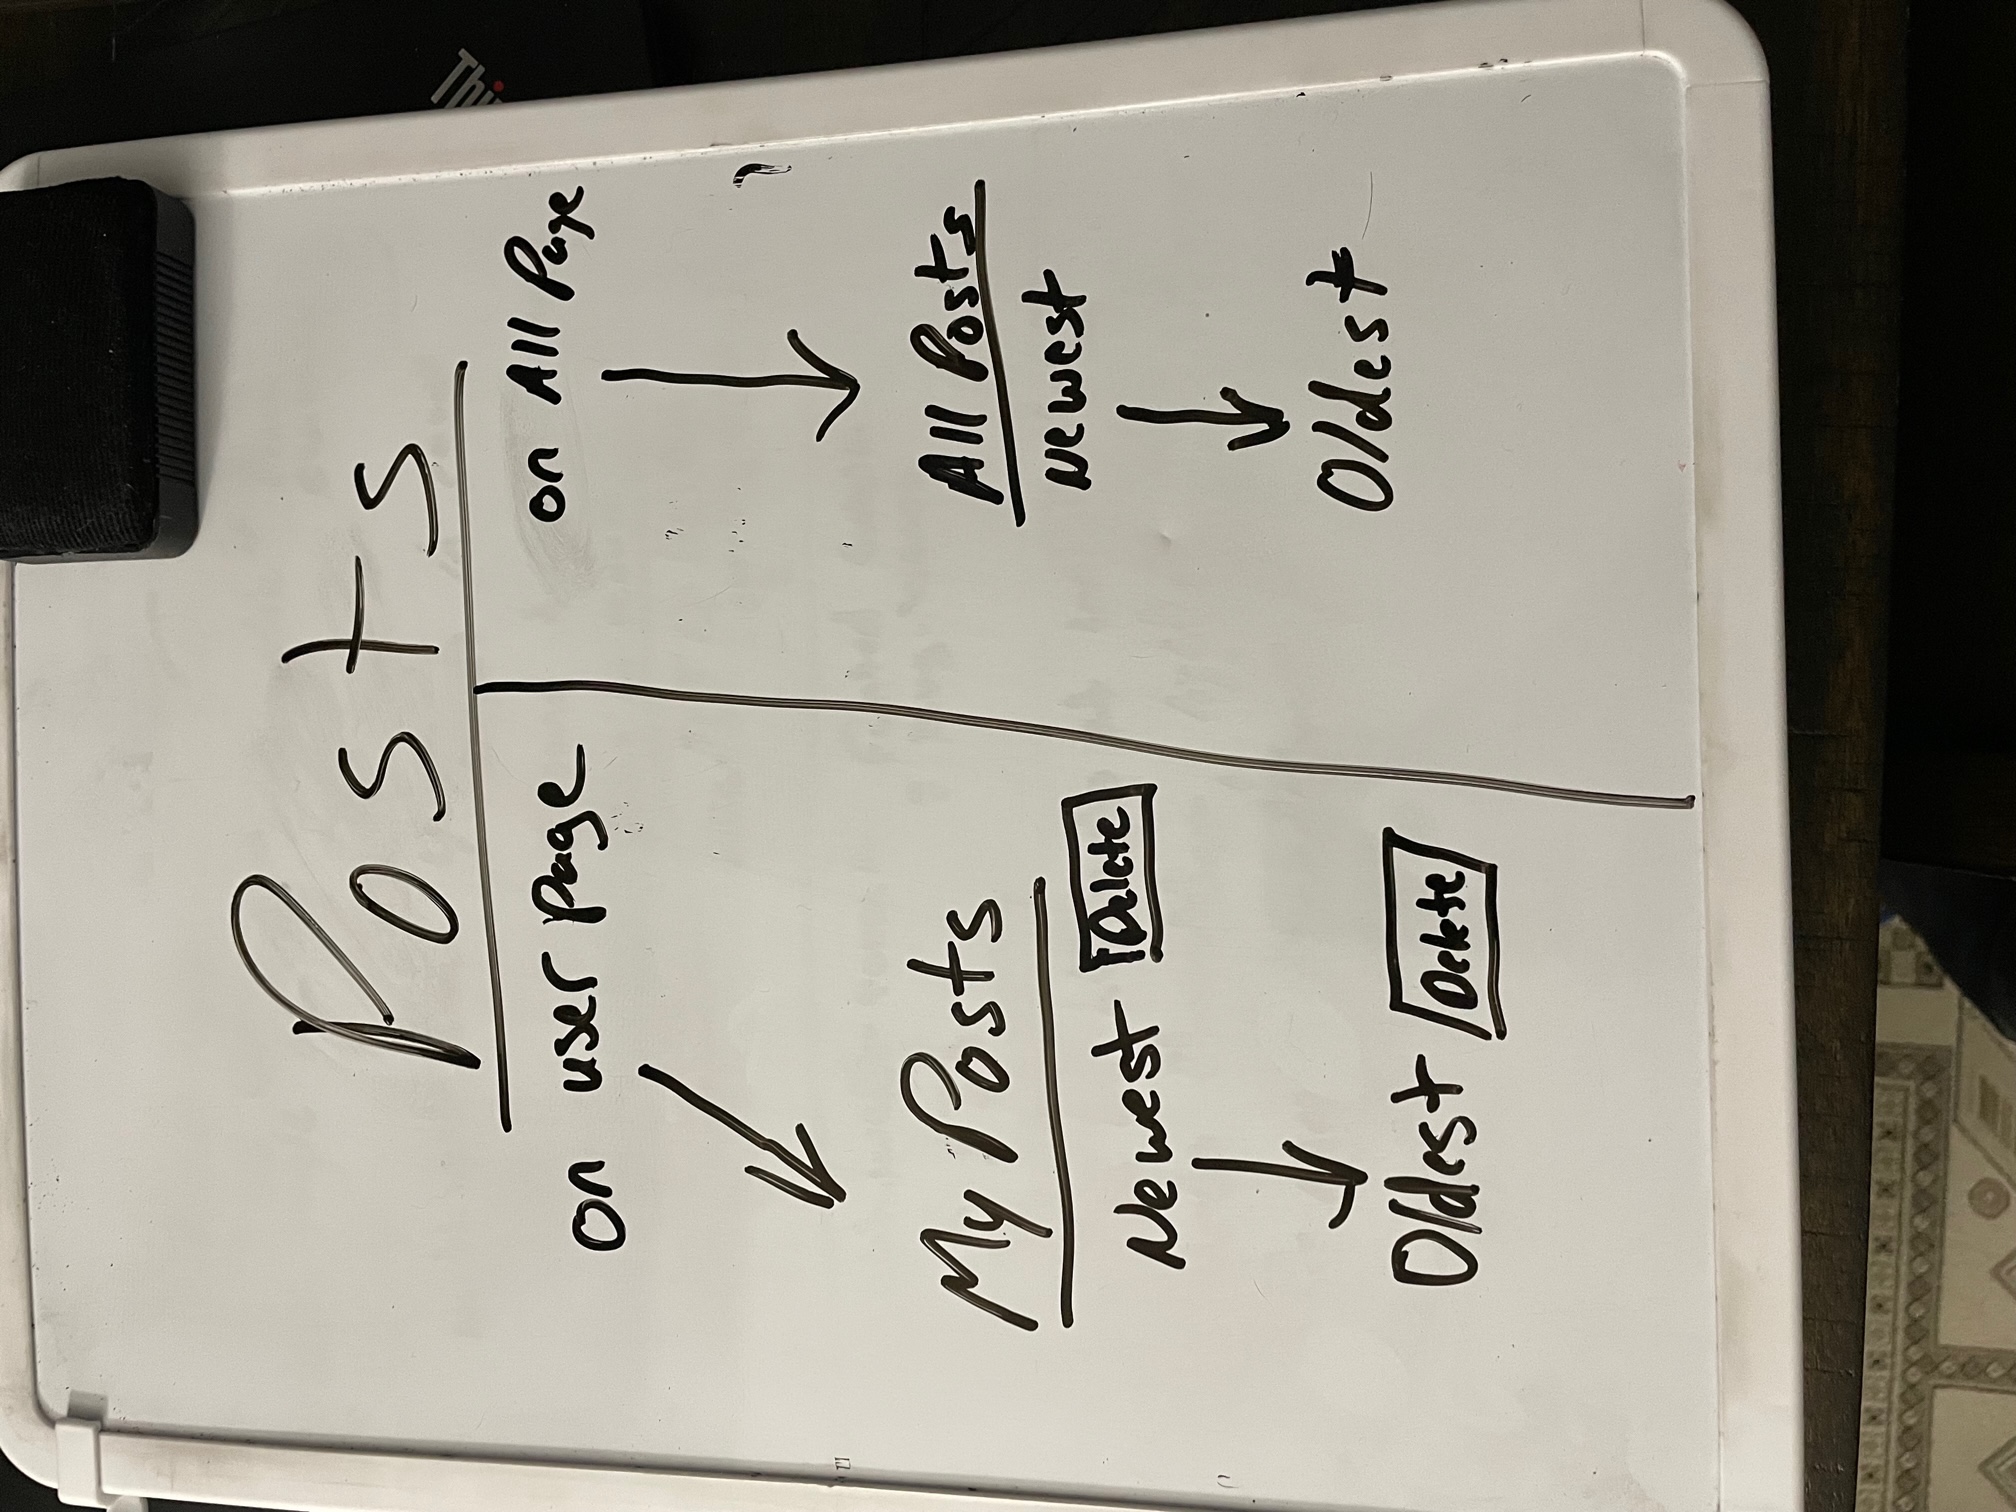 Posts
on user page
My Posts
Newest Delete
Oldest Delete
on All Page
All Posts
Newest
Oldest